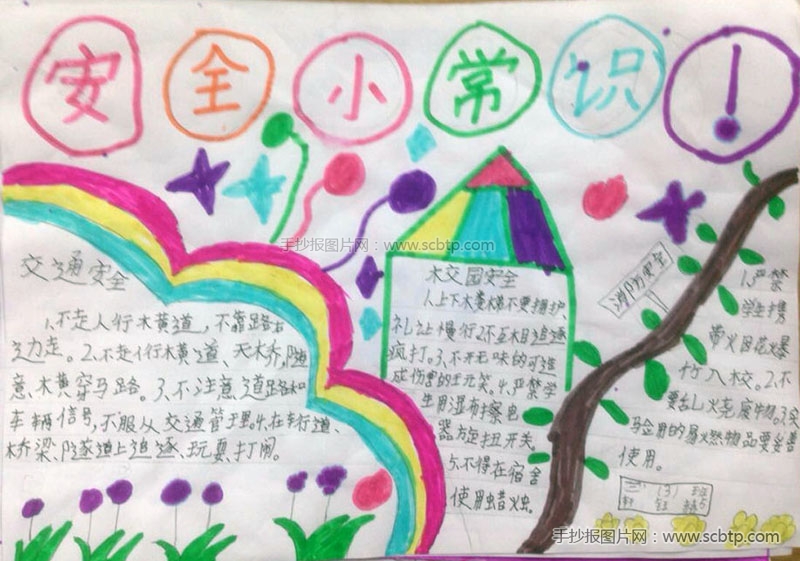 安全小常识！
手抄报图片网：www.scbtp.com
交通安全
1.不走人行木黄道，不靠路右
走。2.不走人行木黄道、天木乔，随
意木黄穿马路。3.不注意道路和
车辆信号，不服从交通管理。4.在车行道、
桥梁、隧道上追逐、玩耍、打闹。
木交园安全
1.上下木娄梯不要拥护、
礼让慢行2.不互木目追逐
疯打。3.不开无味的可造
成伤害的玩笑。4.严禁学
生用湿有擦电
器旋扭开关
5.不得在宿舍
使用蜡烛。
消防安全
1.严禁
学生携
带火因花火暴
竹入木交。2.不
要乱火尧废物。3.实
马佥用的易燃物品要妥善
使用。
三（3）班
手抄报图片网：www.scbtp.com